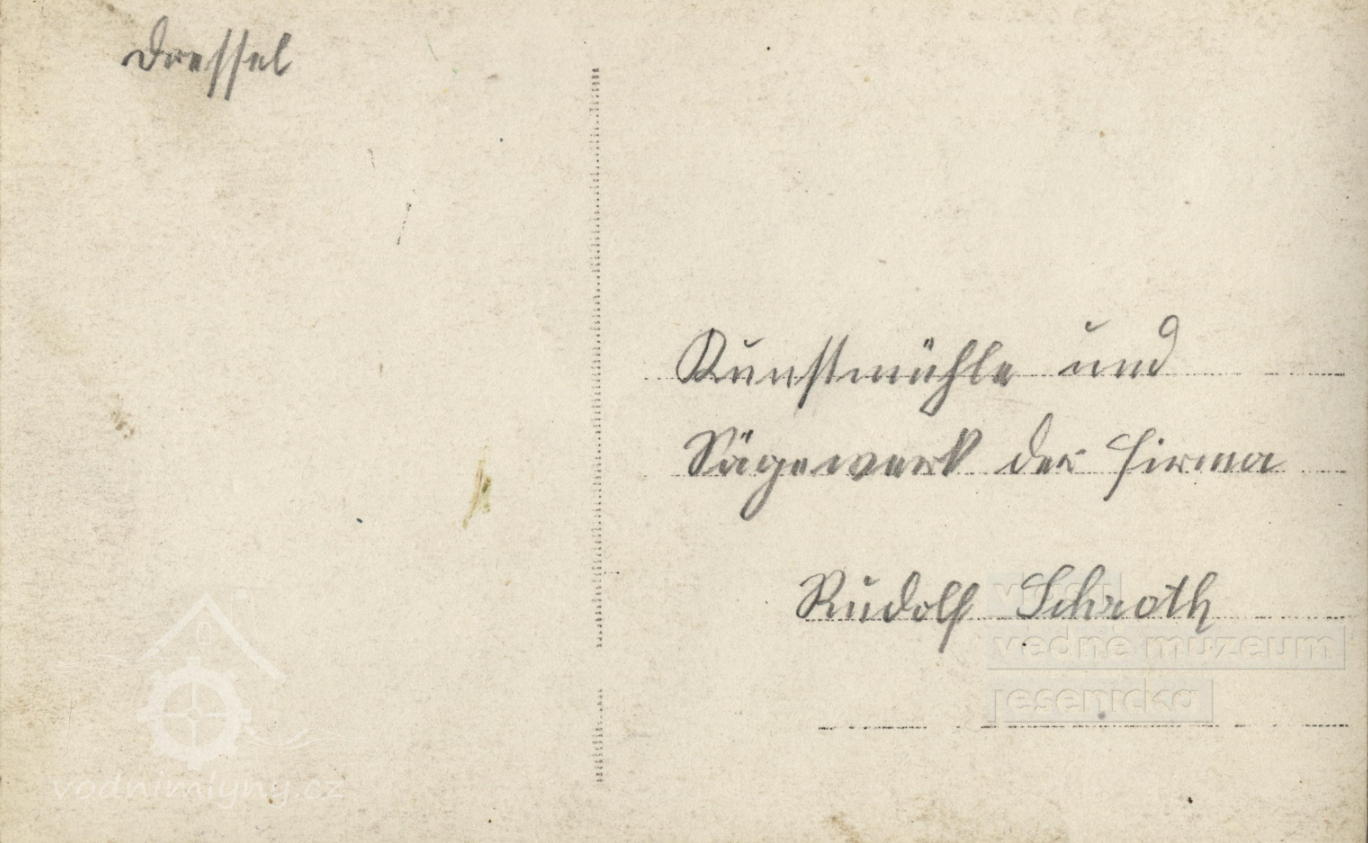 Dressel
Kunstmühle und
Sägewerk der Firma
Rudolf Schroth
vedne muzeum
jesenicka
vodnimlyny.cz